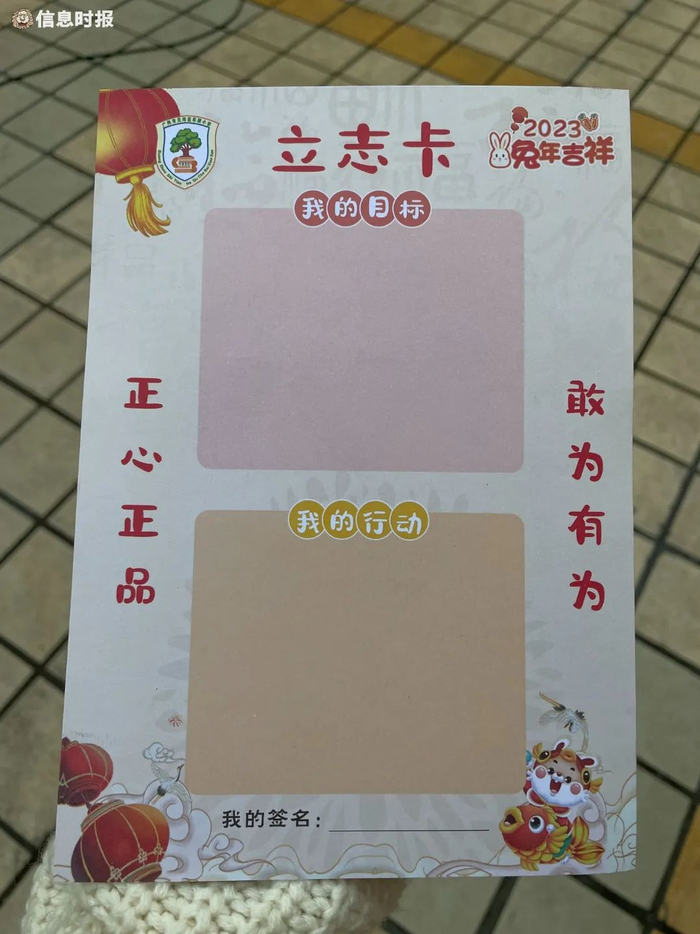 信息时报
立志卡
2023
兔年吉祥
我的目标
正心正品
敢为有为
我的行动
我的签名：